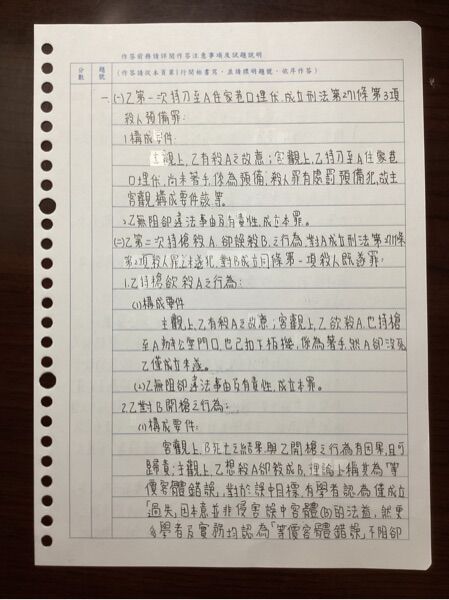 作答前務請詳閱作答注意事項及試題說明
分數 題號 (作答請從本頁第1行開始書寫,並請標明題號,依序作答)
一、(一)乙第一次持刀至A住家巷口埋伏,成立刑法第271條第3項
殺人預備罪:
1.構成要件:
主觀上,乙有殺A之故意;客觀上,乙持刀至A住家巷
口埋伏,尚未著手,係為預備,殺人罪有處罰預備犯,故主
客觀構成要件該等。
2.乙無阻卻違法事由及有責性,成立本罪。
(二)乙第二次持槍殺A,卻誤殺B之行為,對A成立刑法第271條
第2項殺人罪之未遂犯,對B成立同條第一項殺人既遂罪:
1.乙持槍欲殺A之行為:
(1)構成要件
主觀上,乙有殺A之故意;客觀上,乙欲殺A,也持槍
至A辦公室門口,也已扣下板機,係為著手,然A卻沒死,
乙僅成立未遂。
(2)乙無阻卻違法事由及有責性,成立本罪。
2.乙對B開槍之行為:
(1)構成要件:
客觀上,B死亡之結果與乙開槍之行為有因果,且可
歸責;主觀上,乙想殺A卻殺成B,理論上稱其為「等
價客體錯誤」,對於誤中目標,有學者認為僅成立
「過失」,因本意並非侵害誤中客體(B)的法益,然更
學者及實務均認為「等價客體錯誤」不阻卻